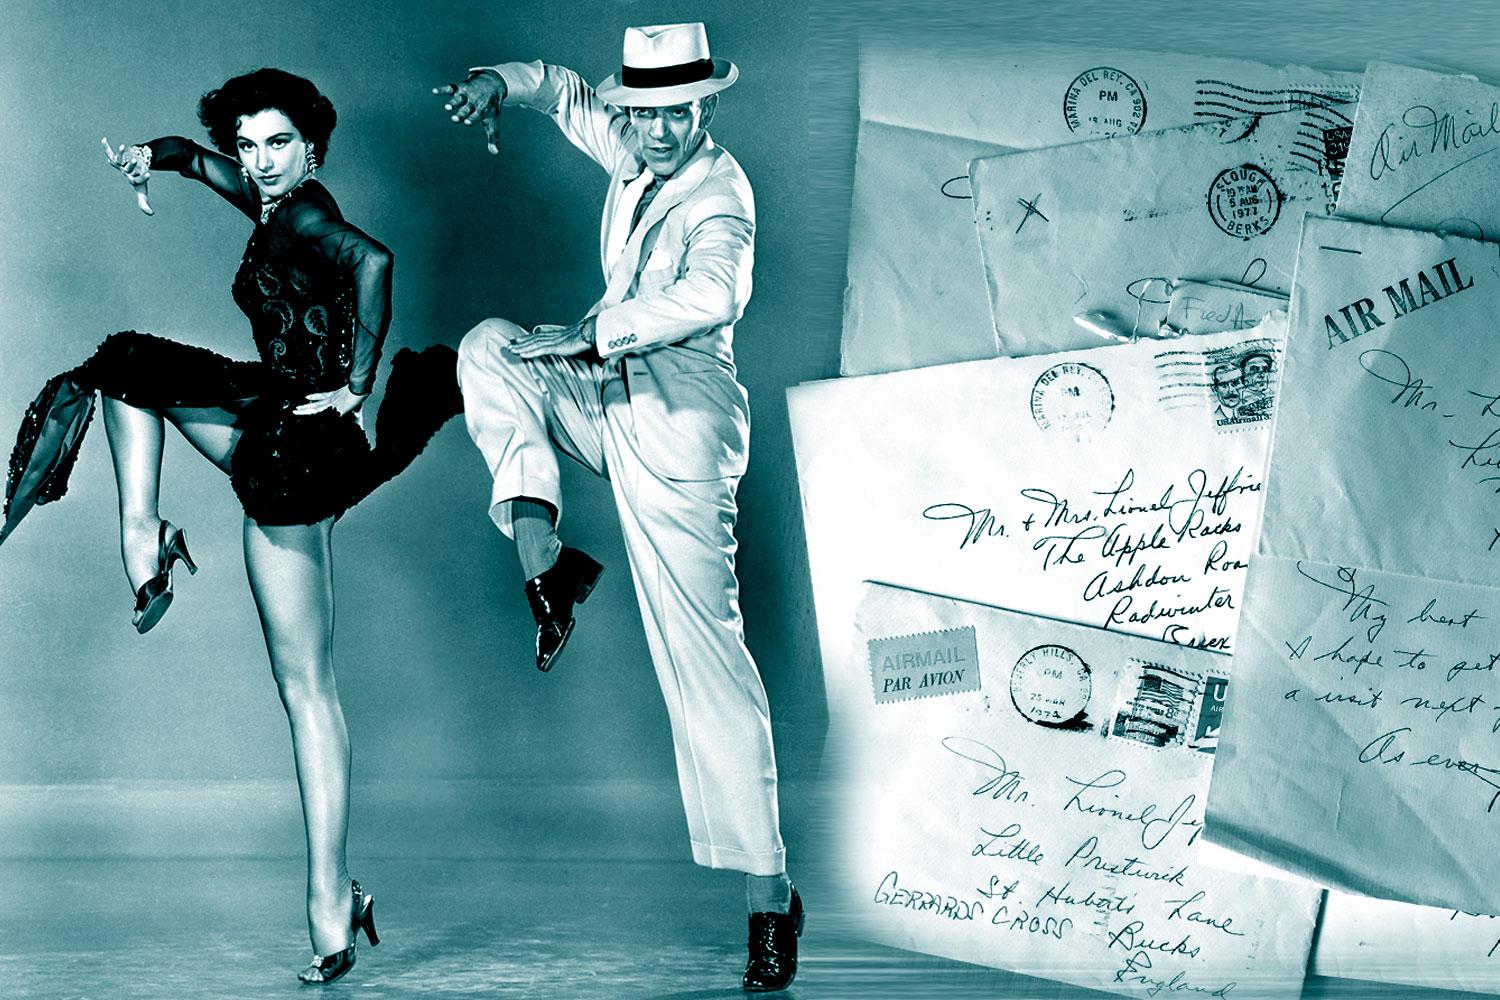 MARINA DEL REY, CA 902
PM
AUG
Air Mail
SLOUGH
AM
5 AUG
1977
BERKS
X
Fred
AIR MAIL
Mr.
MARINA DEL REY,
PM
USAirmail
Mr. & Mrs. Lionel Jeffrie
The Apple Racks
Ashdon Roa
Radwinter
Essex
My best
I hope to get
a visit next
As ever
AIRMAIL
PAR AVION
BEVERLY HILLS, CA
PM
25 MAR
1974
U
AIR
Mr. Lionel Je
Little Prestwick
St. Hubert's Lane
GERRARDS CROSS
Bucks.
England